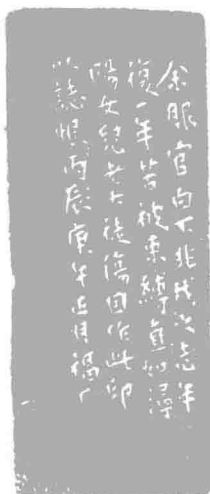 余服官白下非我志年
復一年苦被束縛真如潯
陽女兒老大徒傷因作此印
以誌恨庚午正月福厂